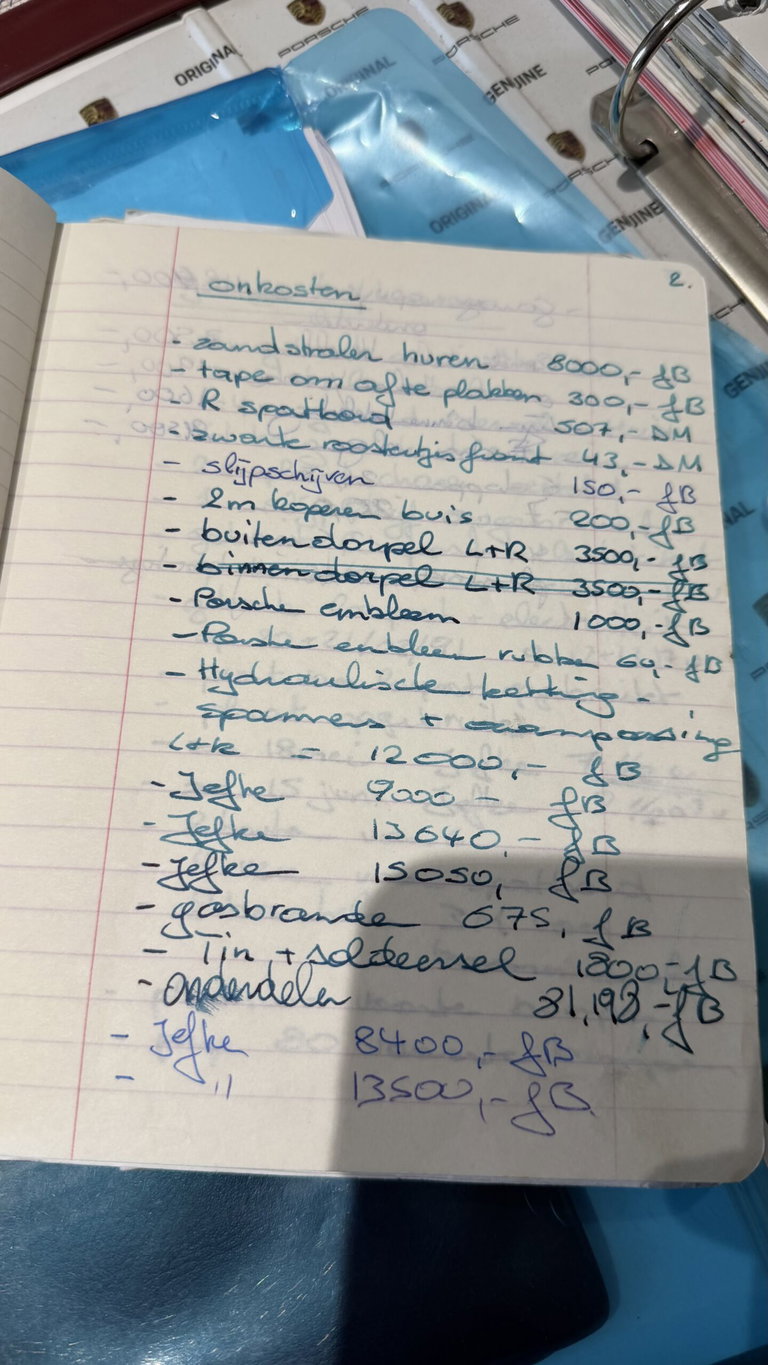 ORIGINAL
PORSCHE
PORSCHE
ORIGINAL
GENUINE
PORSCHE
ORIGINAL
GENUINE
2.
onkosten
- zandstralen huren 8000,- fB
- tape om af te plakken 300,- fB
- R spatbord 507,- DM
- zwarte roostertjes front 43,- DM
- slijpschijven 150,- fB
- 2m koperen buis 200,- fB
- buitendorpel L+R 3500,- fB
- binnendorpel L+R 3500,- fB
- Porsche embleem 1000,- fB
- Porsche embleem rubber 60,- fB
- Hydraulische ketting-
spanners + aanpassing
L+R = 12000,- fB
- Jefke 9000 - fB
- Jefke 13640,- fB
- Jefke 15050,- fB
- gasbrander 675, fB
- Tin + soldeersel 1800 - fB
- onderdelen 81,198,- fB
- Jefke 8400,- fB
- ,, 13500,- fB